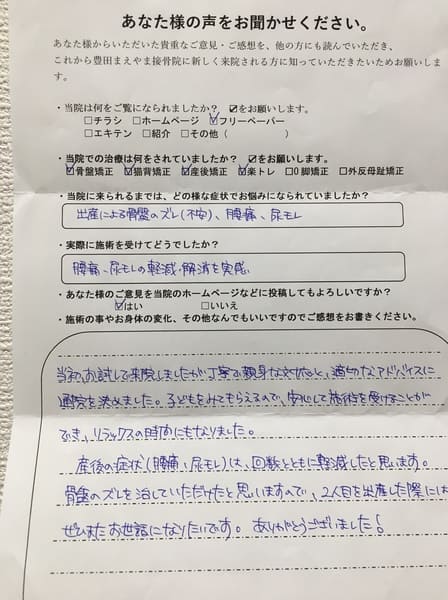 あなた様の声をお聞かせください。
あなた様からいただいた貴重なご意見・ご感想を、他の方にも読んでいただき、
これから豊田まえやま接骨院に新しく来院される方に知っていただきたいためお願いしま
す。
・当院は何をご覧になられましたか？ ☑をお願いします。
□チラシ □ホームページ ☑フリーペーパー
□エキテン □紹介 □その他（ ）
・当院での治療は何をされていましたか？ ☑をお願いします。
☑骨盤矯正 ☑猫背矯正 ☑産後矯正 ☑楽トレ □O脚矯正 □外反母趾矯正
・当院に来られるまでは、どの様な症状でお悩みになられていましたか？
出産による骨盤のズレ(不安)、腰痛、尿モレ
・実際に施術を受けてどうでしたか？
腰痛、尿モレの軽減・解消を実感
・あなた様のご意見を当院のホームページなどに投稿してもよろしいですか？
☑はい □いいえ
・施術の事やお身体の変化、その他なんでもいいですのでご感想をお書きください。
当初、お試しで来院しましたが丁寧で親身な対応と、適切なアドバイスに
通院を決めました。子どももみてもらえるので、安心して施術を受けることが
でき、リラックスの時間にもなりました。
産後の症状(腰痛、尿モレ)は、回数とともに軽減したと思います。
骨盤のズレを治していただけたと思いますので、2人目を出産した際には
ぜひまたお世話になりたいです。ありがとうございました！